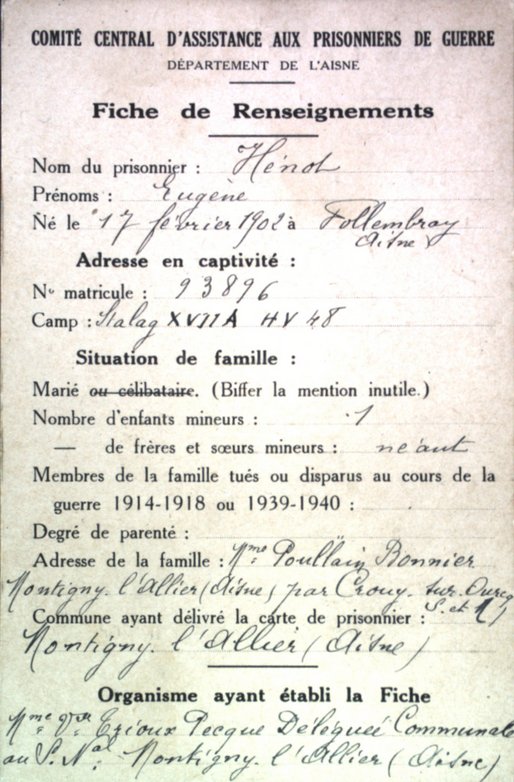 COMITÉ CENTRAL D'ASSISTANCE AUX PRISONNIERS DE GUERRE
DÉPARTEMENT DE L'AISNE
Fiche de Renseignements
Nom du prisonnier : Hénot
Prénoms : Eugène
Né le 17 février 1902 à Follembray
Aisne
Adresse en captivité :
No matricule : 93896
Camp : Stalag XVII A HV 48
Situation de famille :
Marié ou célibataire. (Biffer la mention inutile.)
Nombre d'enfants mineurs : 1
— de frères et sœurs mineurs : néant
Membres de la famille tués ou disparus au cours de la
guerre 1914-1918 ou 1939-1940 :
Degré de parenté :
Adresse de la famille : Mme Poullain Bonnier
Montigny. l'Allier (Aisne) par Crouy. sur. Ourcq
S. et M)
Commune ayant délivré la carte de prisonnier :
Montigny. l'Allier (Aisne)
Organisme ayant établi la Fiche
Mme Vve Erioux Pecque Déléguée Communale
au S. Nal Montigny. l'Allier (Aisne)